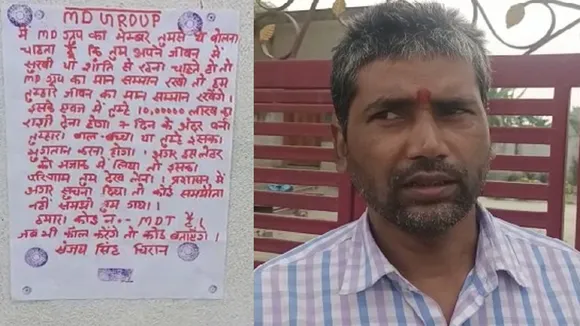 MD GROUP
में MD ग्रुप का मेम्बर तुमसे ये बोलना
चाहता है कि तुम अपने जीवन में
सुखी या शांति से रहना चाहते हो तो
MD ग्रुप का मान सम्मान रखो तो हम
तुम्हारे जीवन का मान सम्मान रखेंगे।
इसके एवज में तुम्हे 10,00000 लाख का
राशी देना होगा 7 दिन के अंदर वर्ना
तुम्हारा बाल-बच्चा या तुम्हे इसका
भुगतान करना होगा। अगर इस लेटर
को मजाक में लिया तो इसका
परिणाम तुम देख लेना। प्रशासन में
अगर सूचना दिया तो कोई समझौता
नहीं समझो तुम गया।
हमारा कोड नं.- MDT है।
जब भी कॉल करेंगे तो कोड बताएंगे।
संजय सिंह